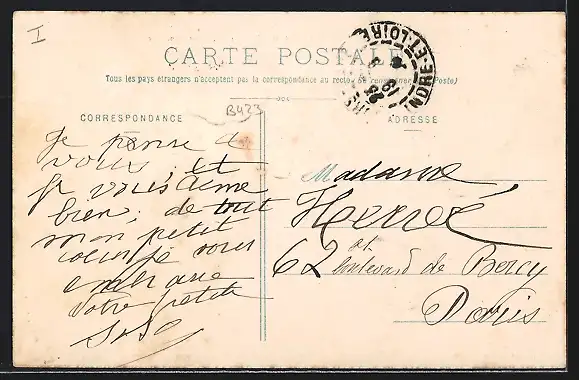 I
CARTE POSTALE
Tous les pays étrangers n'acceptent pas la correspondance au recto (Se renseigner à la Poste)
CORRESPONDANCE
B423
ADRESSE
INDRE-ET-LOIRE
Je pense à
vous, et
je vous aime
bien, de tout
mon petit
coeur je vous
embrasse
Votre petite
Madame
Hervé
62 bt boulevard de Bercy
Paris